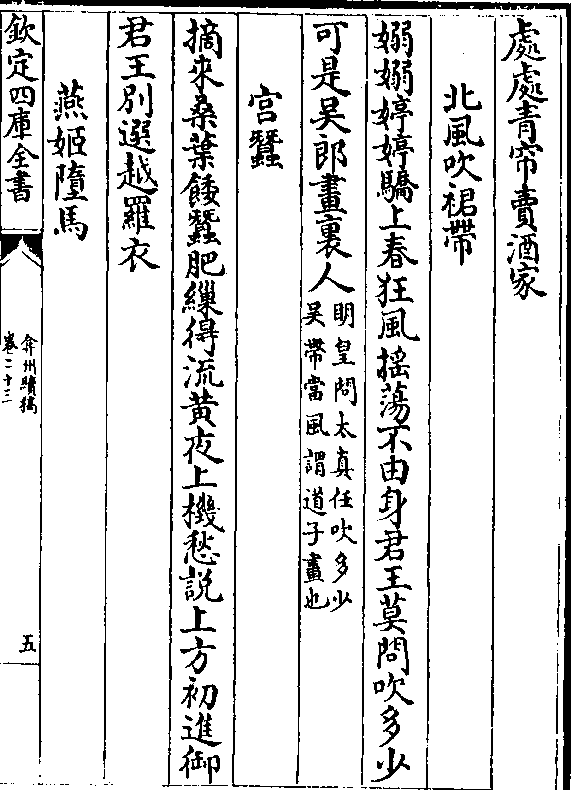 處處青帘賣酒家
北風吹裙帶
嫋嫋婷婷驕上春狂風揺蕩不由身君王莫問吹多少
可是吳郎畫裏人
明皇問太真任吹多少
吳帶當風謂道子畫也
宫蠶
摘來桑葉餧蠶肥繅得流黄夜上機愁説上方初進御
君王別選越羅衣
燕姬墮馬
欽定四庫全書
弇州續稿
卷二十三
五